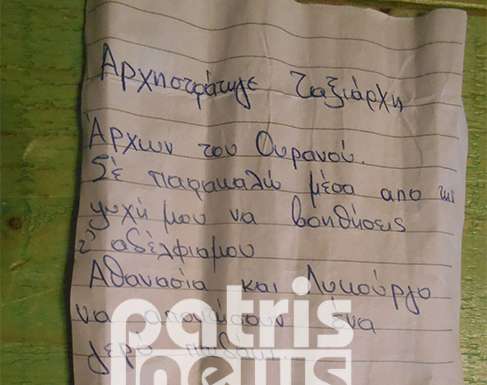 Αρχηστράτηγε Ταξιάρχη
Άρχων του Ουρανού.
Σέ παρακαλώ μέσα απο της
ψυχή μου να βοηθήσεις
αδέλφιαμου
Αθανασία και Λυκούργο
να αποκτήσουν ένα
γερό παιδάκι.
patris
news